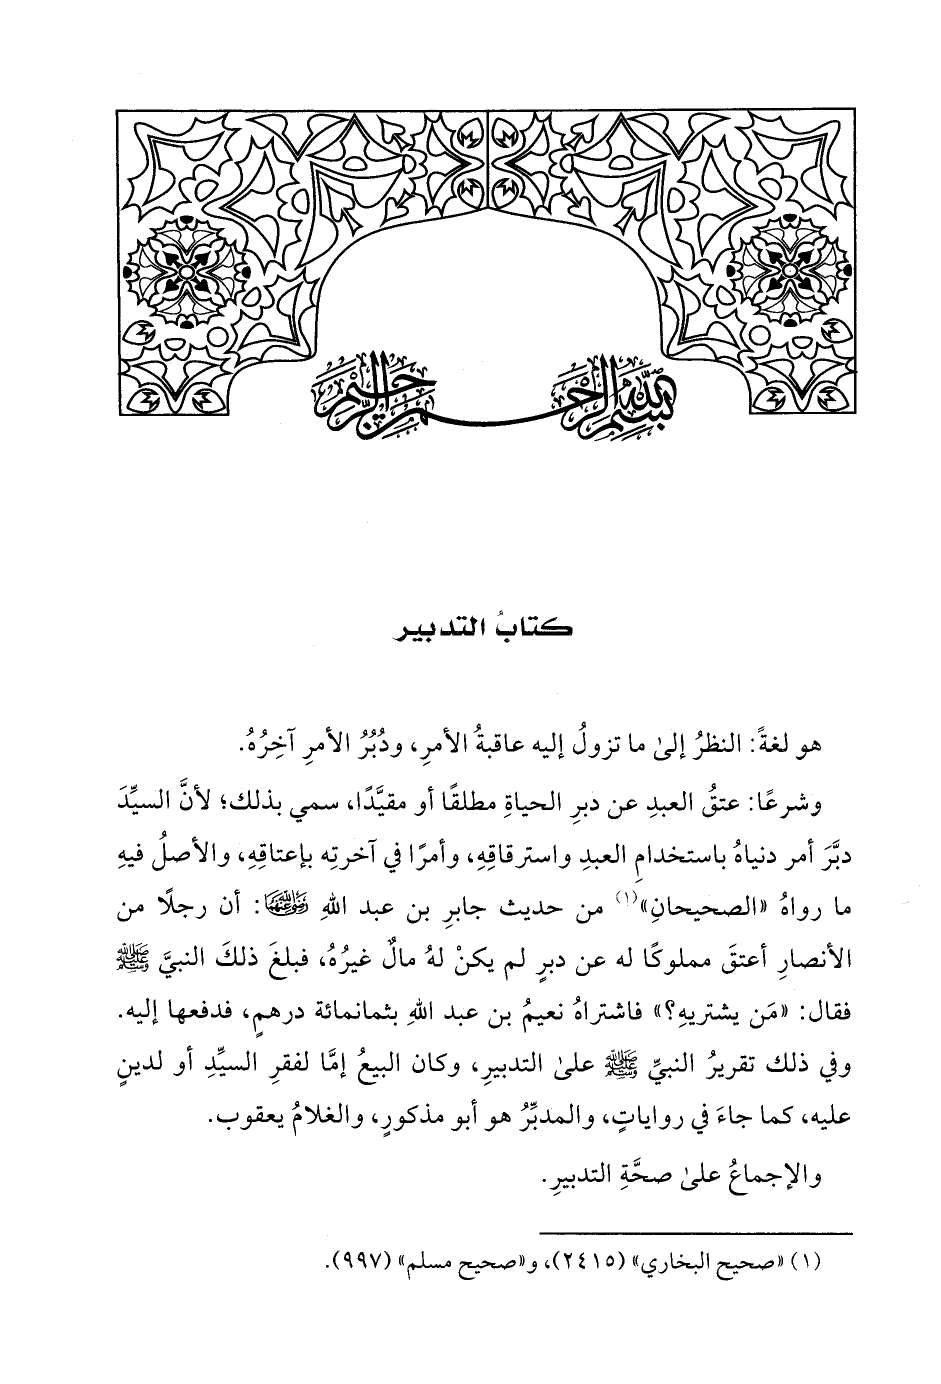 بسم الله الرحمن الرحيم
كتابُ التدبير
هو لغةً: النظرُ إلىٰ ما تزولُ إليه عاقبةُ الأمرِ، ودُبُرُ الأمرِ آخِرُهُ.
وشرعًا: عتقُ العبدِ عن دبرِ الحياةِ مطلقًا أو مقيَّدًا، سمي بذلك؛ لأنَّ السيِّدَ
دبَّرَ أمر دنياهُ باستخدامِ العبدِ واسترقاقِهِ، وأمرًا في آخرتِه بإعتاقِهِ، والأصلُ فيهِ
ما رواهُ «الصحيحانِ»(١) من حديث جابرِ بن عبد اللهِ رضي الله عنهما: أن رجلًا من
الأنصارِ أعتقَ مملوكًا له عن دبرٍ لم يكنْ لهُ مالٌ غيرُهُ، فبلغَ ذلكَ النبيَّ ﷺ
فقال: «مَن يشتريهِ؟» فاشتراهُ نعيمُ بن عبد اللهِ بثمانمائة درهمٍ، فدفعها إليه.
وفي ذلك تقريرُ النبيِّ ﷺ علىٰ التدبيرِ، وكان البيعُ إمَّا لفقرِ السيِّدِ أو لدينٍ
عليه، كما جاءَ في رواياتٍ، والمدبِّرُ هو أبو مذكورٍ، والغلامُ يعقوب.
والإجماعُ علىٰ صحَّةِ التدبيرِ.
(١) «صحيح البخاري» (٢٤١٥)، و«صحيح مسلم» (٩٩٧).